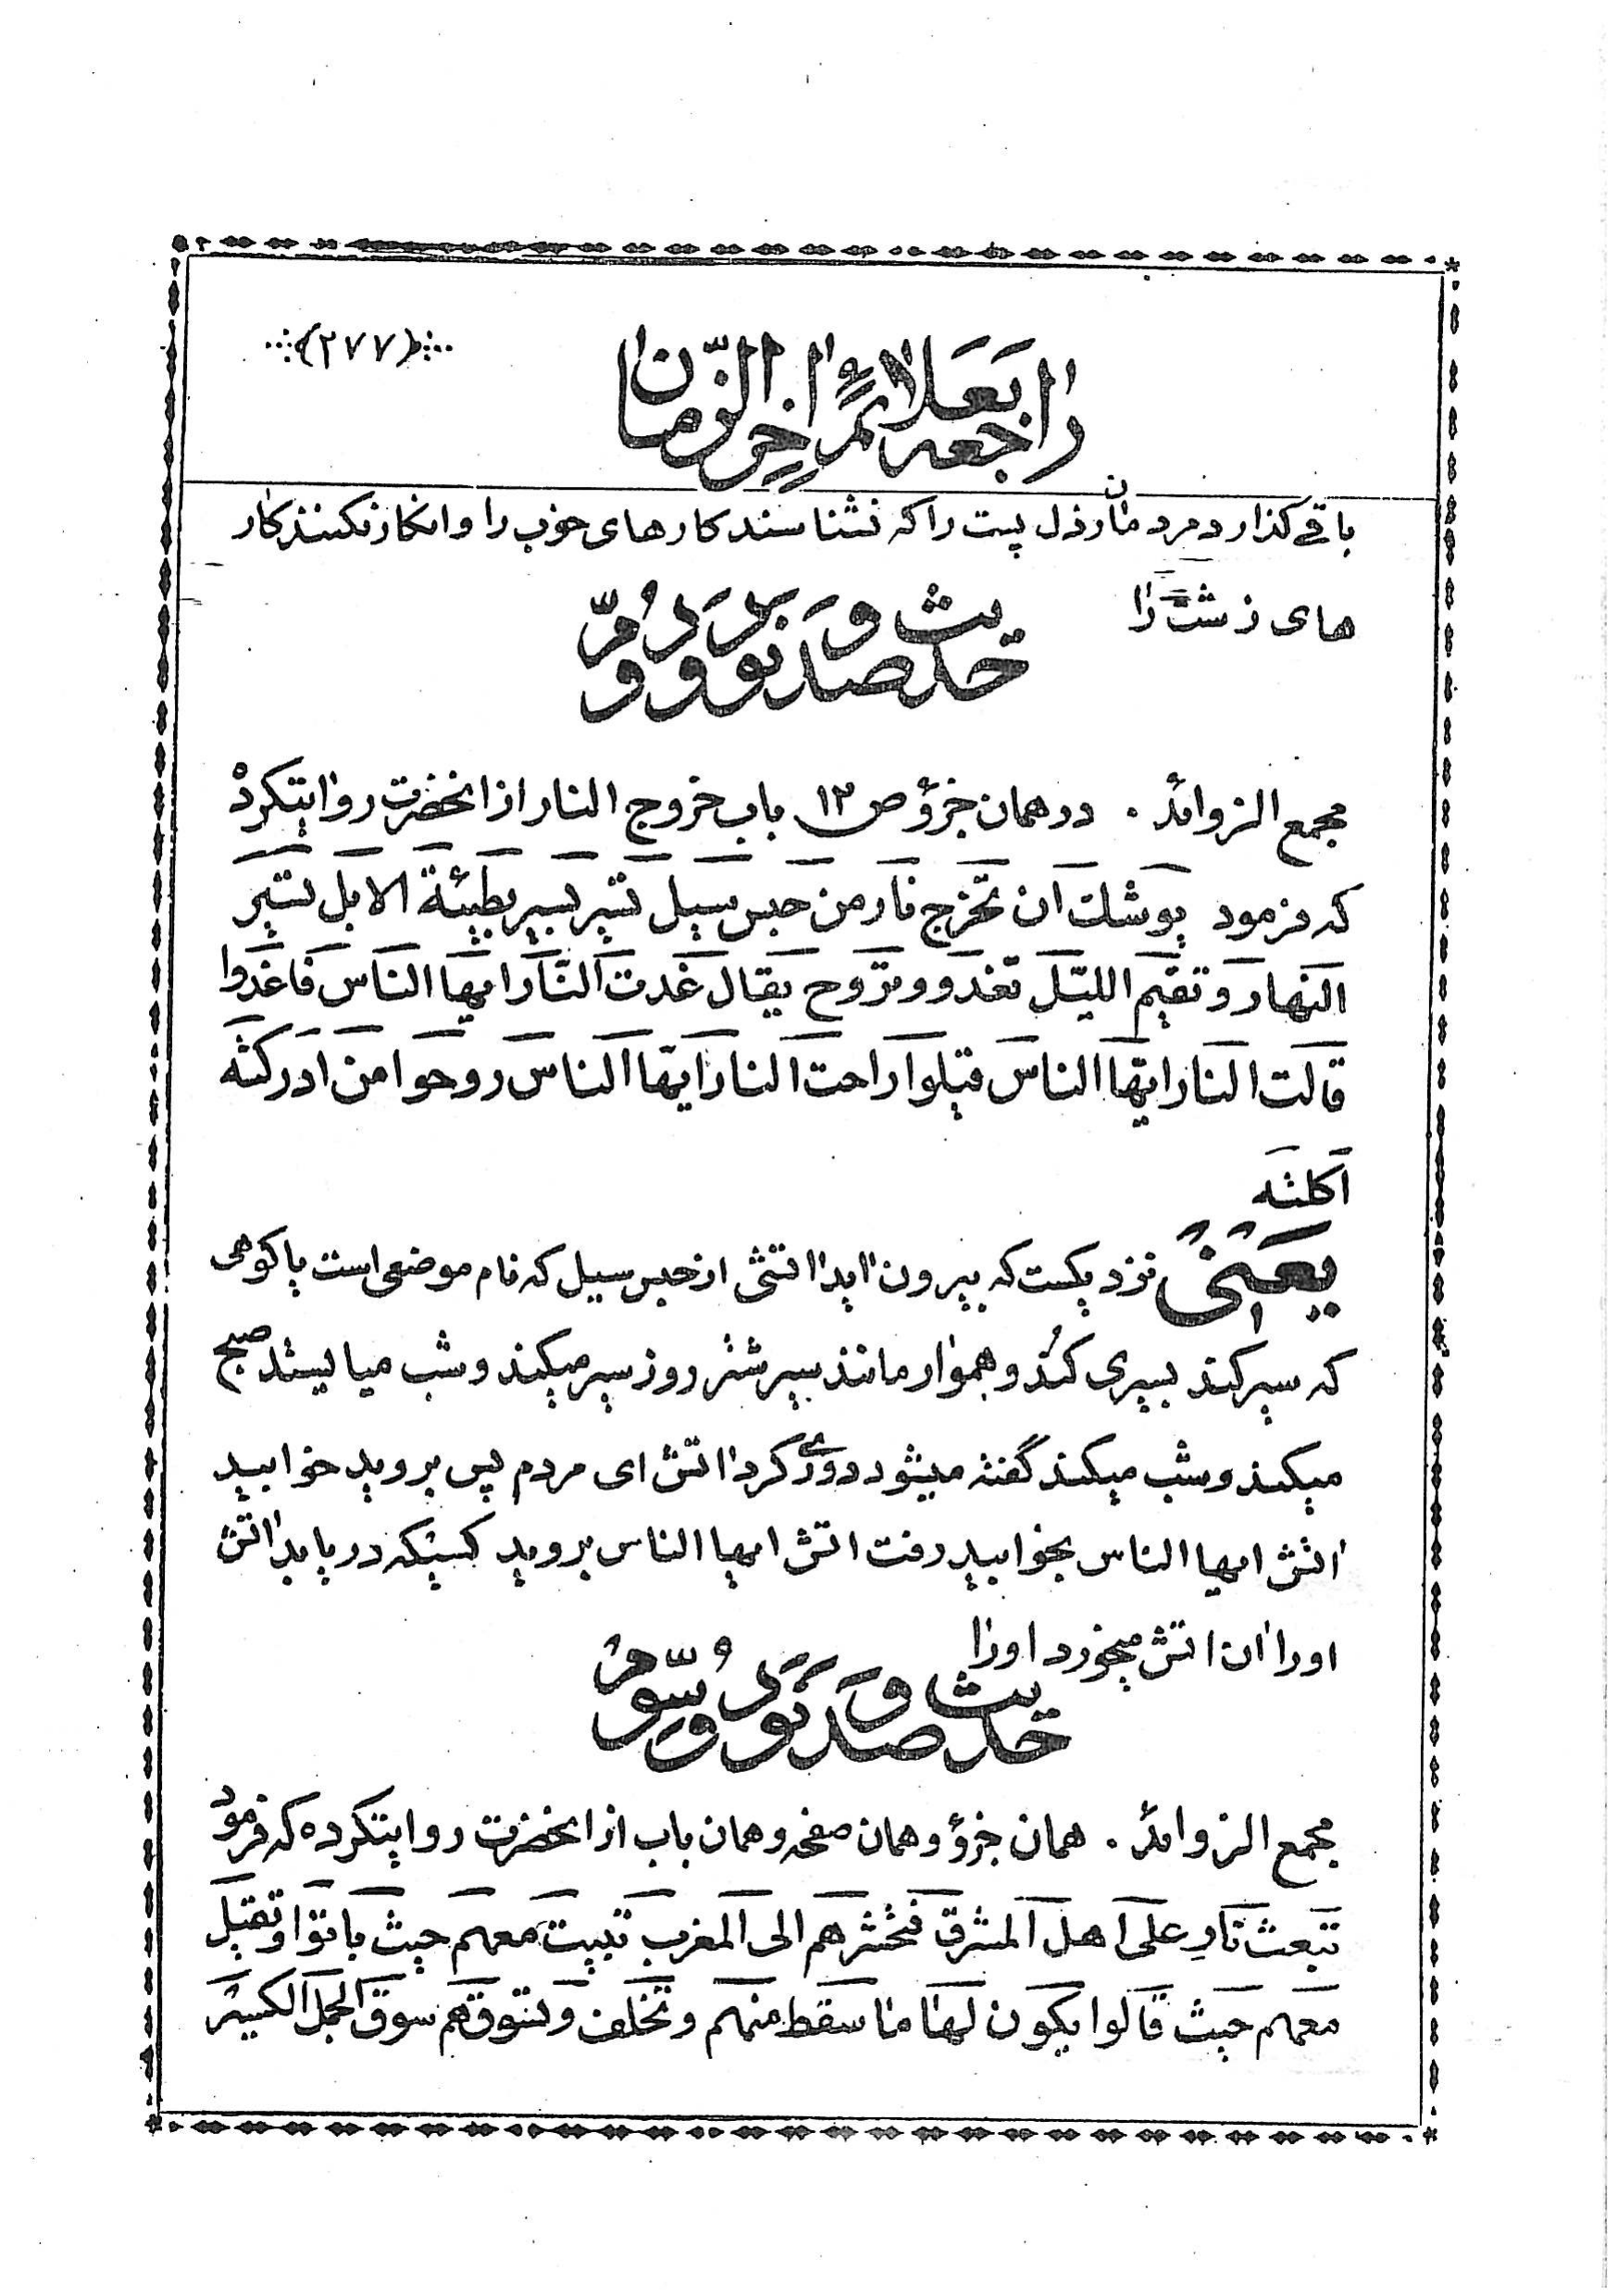 (۲۷۷)
راجعه بعلائم اخر الزمان
باقے گذارد مردمان رذل پست را که نشناسند کارهای خوب را و انکار نکنند کار
های زشت را
حدیث صد و نود و دوم
مجمع الزوائد . در همان جزؤ ص ۱۲ باب خروج النار از انحضرت روایتکرده
که فرمود یوشک ان تخرج نار من حبس سیل تسیر بسیر بطیئة الابل تسیر
النهار و تقیم اللیل تغدو و تروح یقال غدت النار ایها الناس فاغدوا
قالت النار ایها الناس قیلوا راحت النار ایها الناس روحوا من ادرکته
اکلته
یعنی نزدیکست که بیرون اید اتشی از حبس سیل که نام موضعی است یا کوهی
که سیر کند بسیری کند و هموار مانند سیر شتر روز سیر میکند و شب میایستد صبح
میکند و شب میکند گفته میشود دوری کرد اتش ای مردم پس بروید خوابید
اتش ایها الناس بخوابید رفت اتش ایها الناس بروید کسیکه دریابد اتش
اورا ان اتش میخورد اورا
حدیث صد و نود و سوم
مجمع الزوائد . همان جزؤ و همان صفحه و همان باب از انحضرت روایتکرده که فرمود
تبعث نار علی اهل المشرق فتحشرهم الی المغرب تبیت معهم حیث باتوا و تقیل
معهم حیث قالوا یکون لها ما سقط منهم و تخلف و تسوقهم سوق الجمل الکسیر